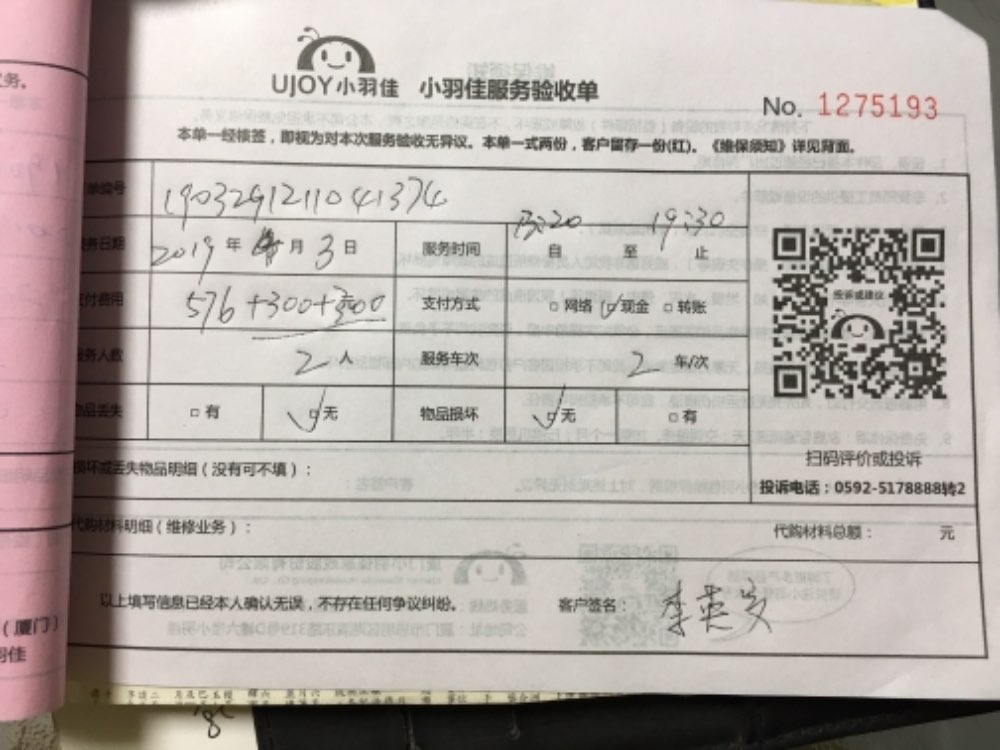 UJOY小羽佳 小羽佳服务验收单
No. 1275193
本单一经核签，即视为对本次服务验收无异议。本单一式两份，客户留存一份(红)。《维保须知》详见背面。
单编号 190329121104 1374
务日期 2019 年 月 3 日 服务时间 自 至 19:30 止
付费用 576+300+300 支付方式 □网络 ☑现金 □转账
务人数 2 人 服务车次 2 车/次
物品丢失 □有 ☑无 物品损坏 ☑无 □有
投诉或建议
扫码评价或投诉
投诉电话：0592-5178888转2
损坏或丢失物品明细（没有可不填）：
代购材料明细（维修业务）： 代购材料总额： 元
以上填写信息已经本人确认无误，不存在任何争议纠纷。 客户签名： 李英
务。
（厦门）
羽佳